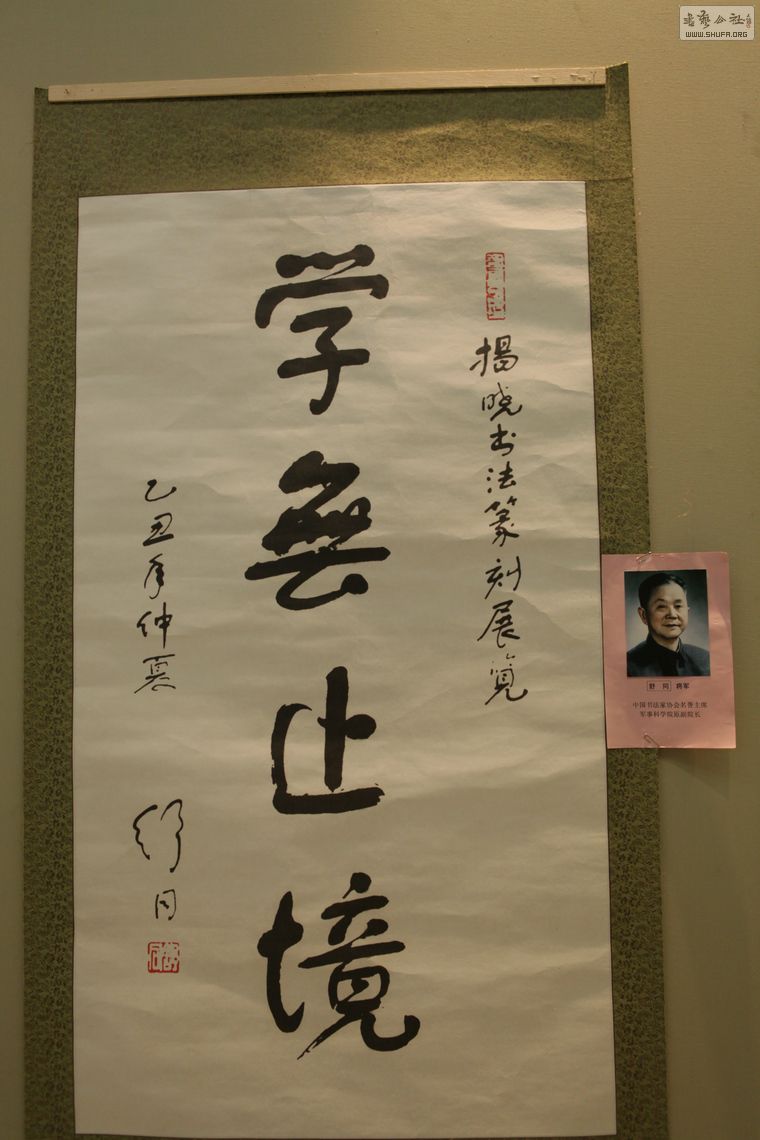 揭晓书法篆刻展览
学無止境
乙丑年仲夏
舒同
舒同 将军
中国书法家协会名誉主席
军事科学院原副院长
书艺公社
WWW.SHUFA.ORG